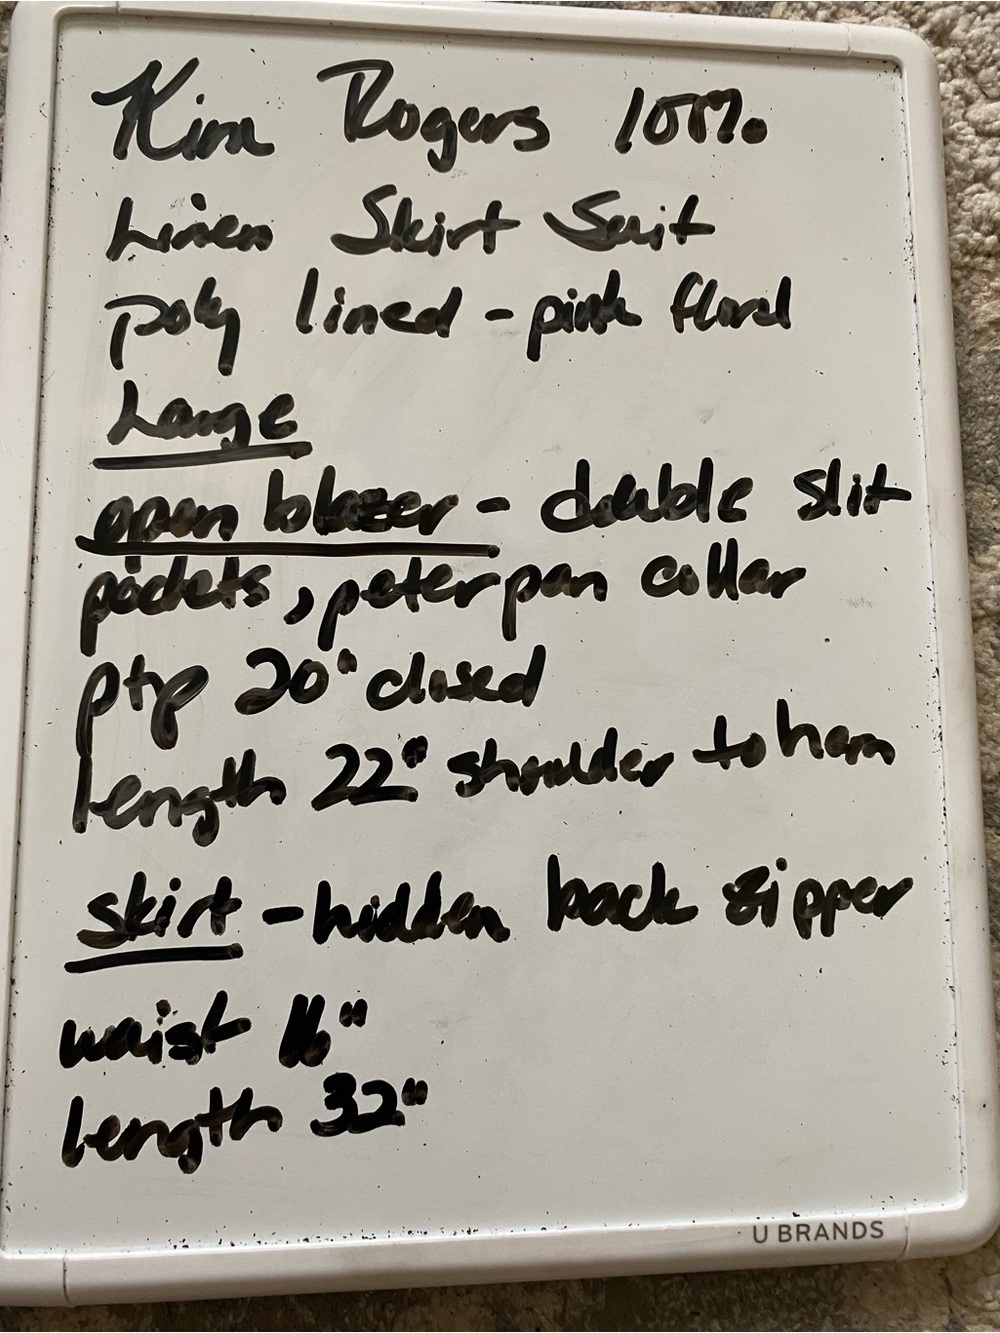 Kim Rogers 100%
Linen Skirt Suit
poly lined - pink floral
Large
open blazer - double slit
pockets, peterpan collar
ptp 20" closed
length 22" shoulder to hem
skirt - hidden back zipper
waist 16"
length 32"
U BRANDS